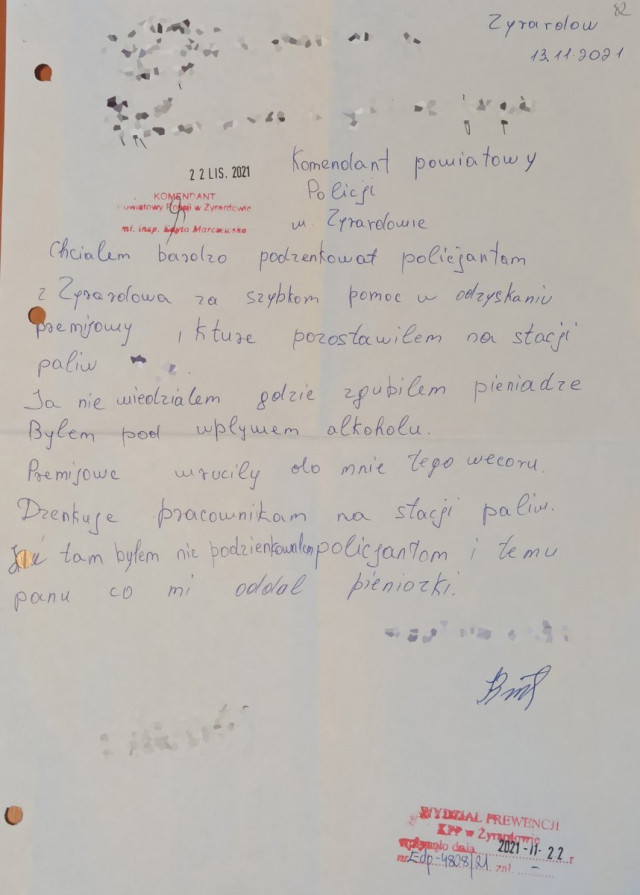 82
Zyrardow
13.11.2021
22 LIS. 2021
Komendant powiatowy
Policji
w. Zyrardowie
KOMENDANT
Powiatowy Policji w Żyrardowie
mł. insp. Edyta Marczewska
Chciałem bardzo podzenkowat policjantam
z Zyrardowa za szybkom pomoc w odzyskaniu
premijowy , kture pozostawilem na stacji
paliw
Ja nie wiedzialem gdzie zgubilem pieniadze
Bylem pod wplywem alkoholu.
Premijowe wruciły do mnie tego wecoru.
Dzenkuje pracownikam na stacji paliw.
tam bylem nie podzienkowalem policjantom i temu
panu co mi oddal pieniozki.
WYDZIAŁ PREWENCJI
KPP w Żyrardowie
wpłynęło dnia 2021-11-22 r
nr Edp-4828/21 zał. -